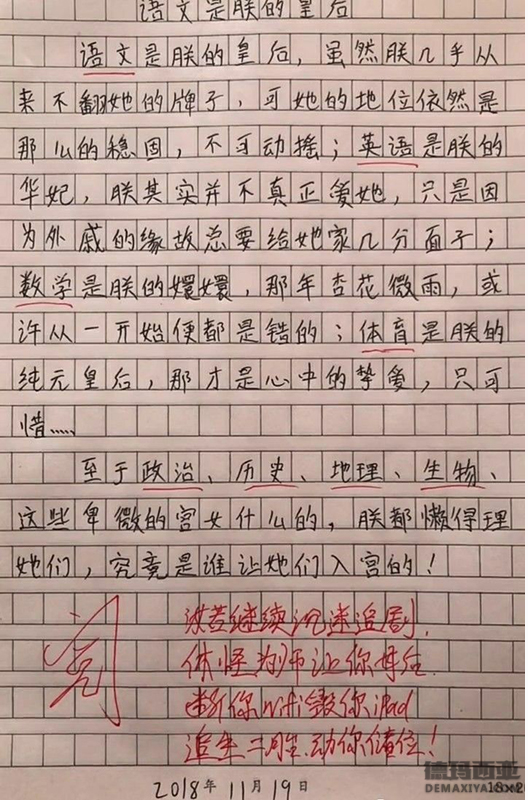 语文是朕的皇后
语文是朕的皇后，虽然朕几乎从
来不翻她的牌子，可她的地位依然是
那么的稳固，不可动摇；英语是朕的
华妃，朕其实并不真正爱她，只是因
为外戚的缘故总要给她家几分面子；
数学是朕的嬛嬛，那年杏花微雨，或
许从一开始便都是错的；体育是朕的
纯元皇后，那才是心中的挚爱，只可
惜……
至于政治、历史、地理、生物、
这些卑微的宫女什么的，朕都懒得理
她们，究竟是谁让她们入宫的！
阅
汝若继续沉迷追剧，
休怪为师让你母后
断你wifi毁你iPad
追生二胎，动你储位！
2018年11月19日
18x2
德玛西亚
DEMAXIYA